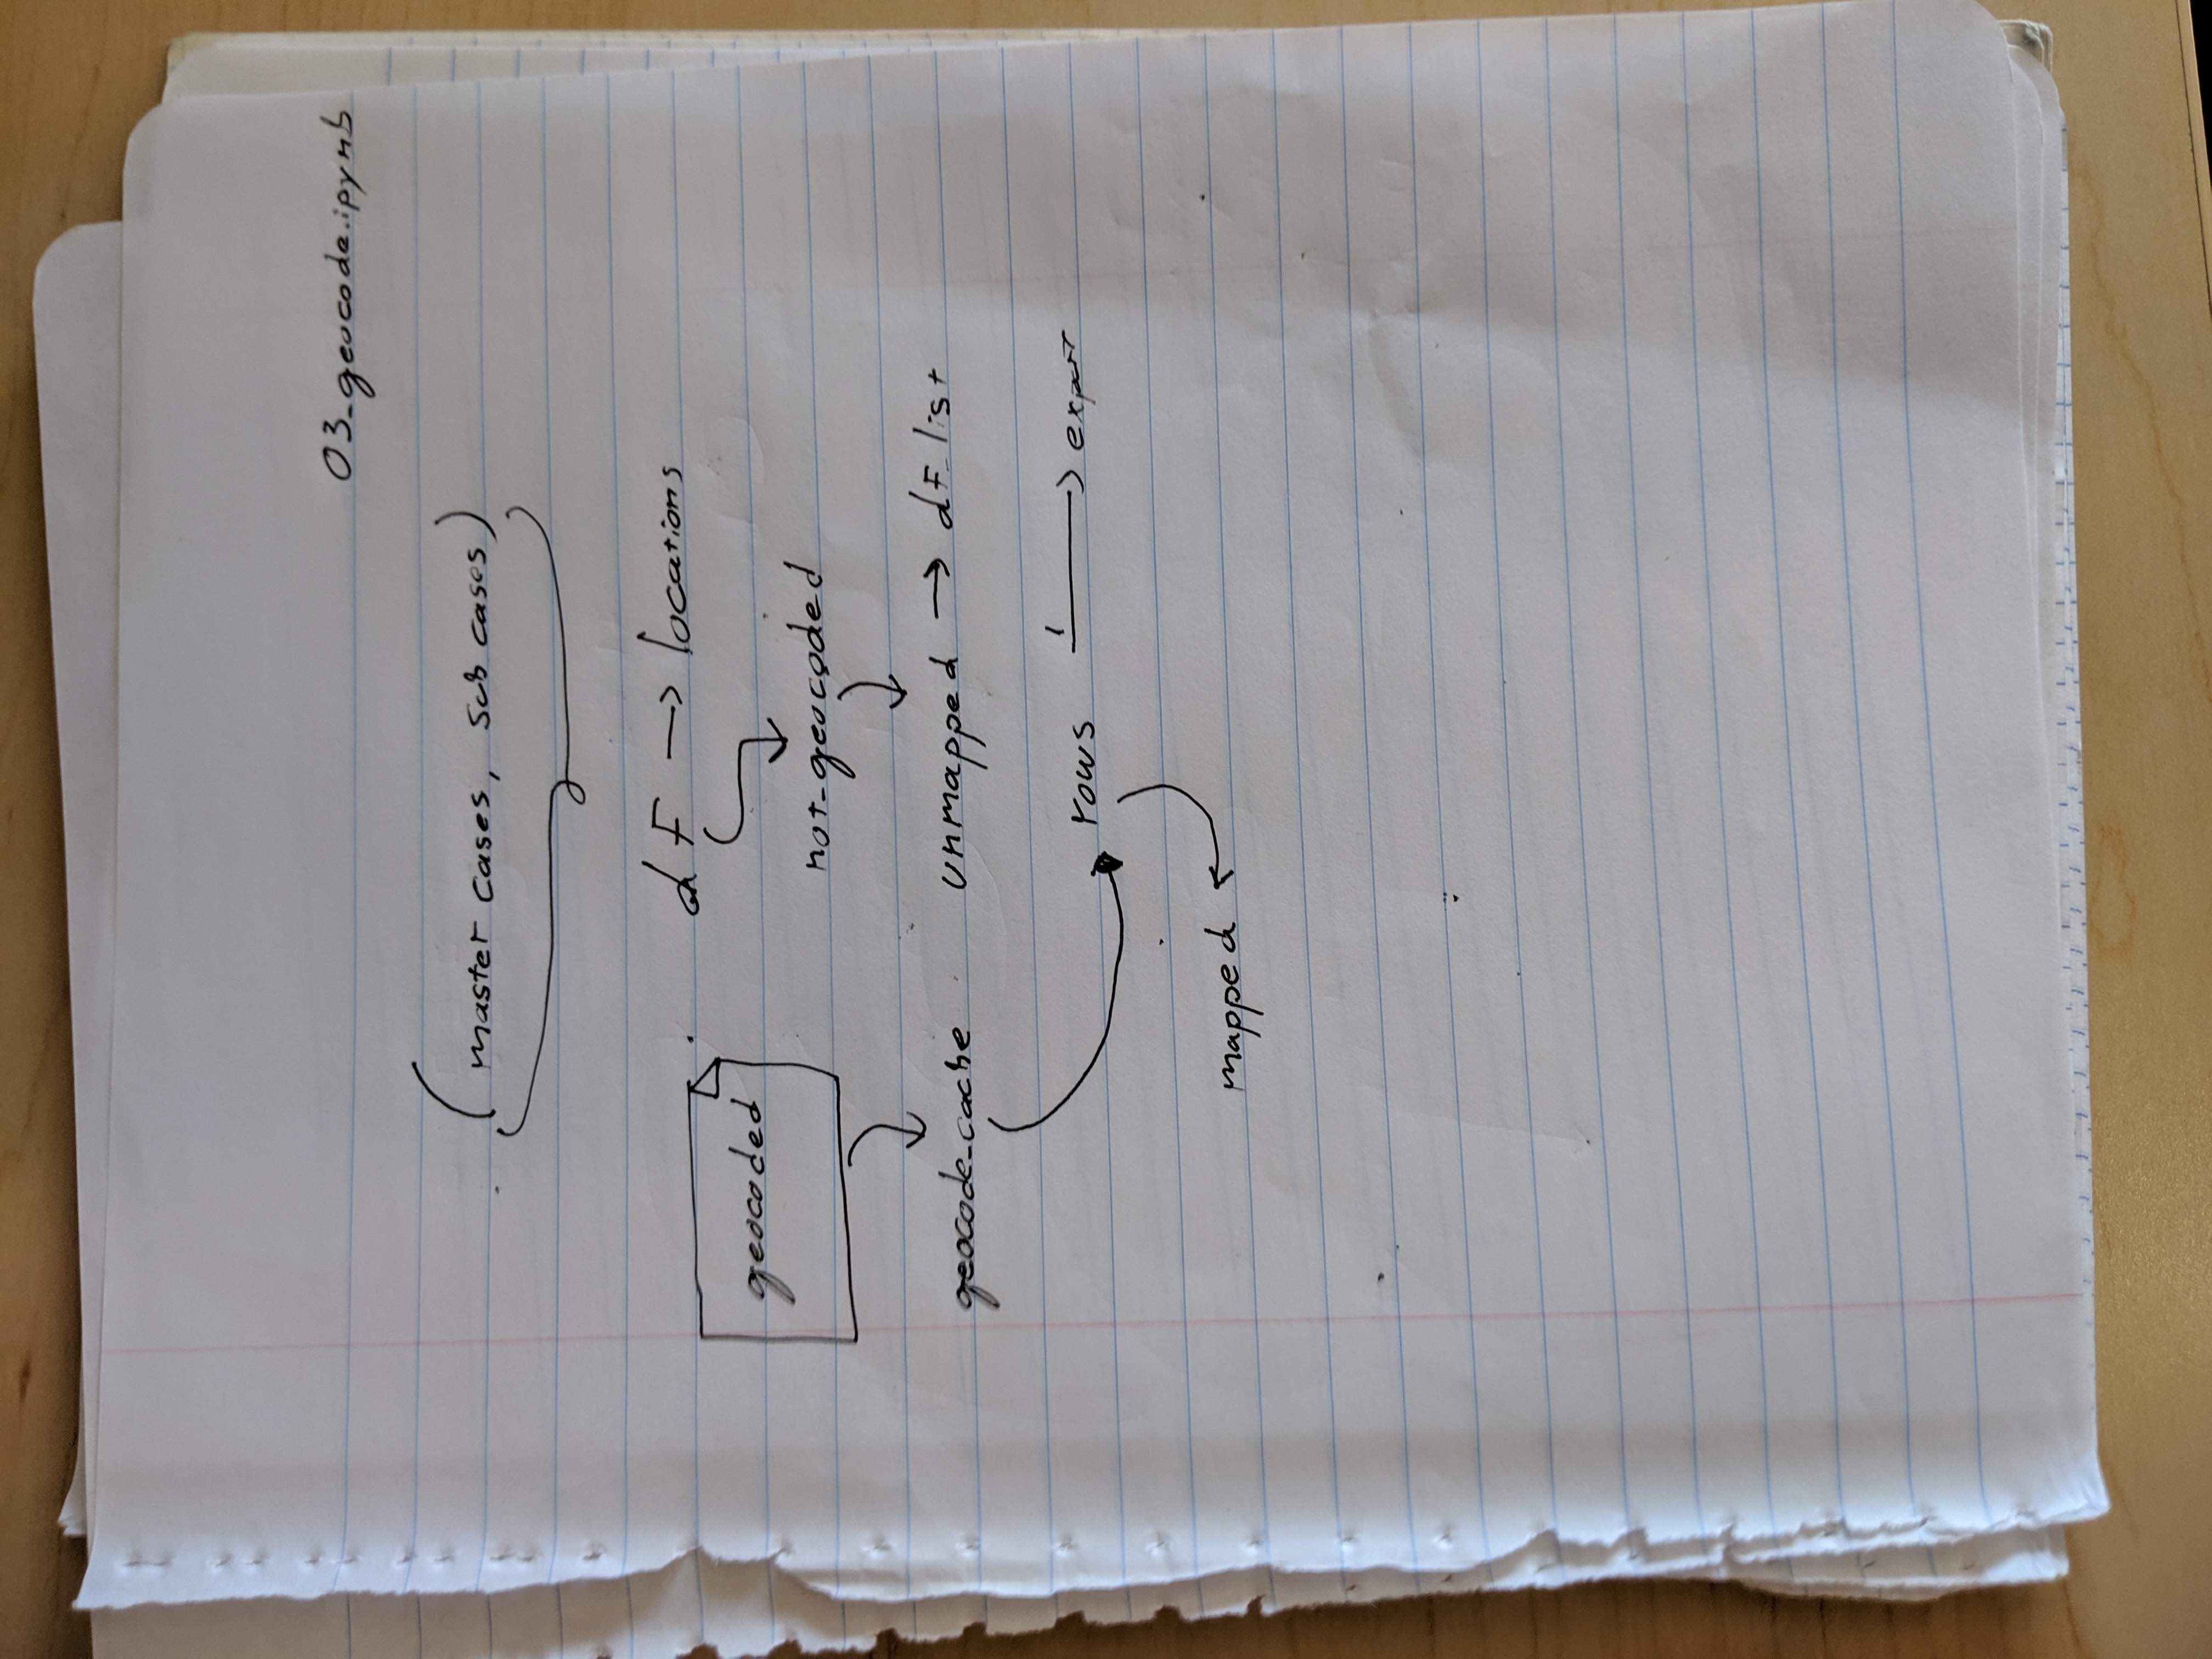 03_geocode.ipynb
(master cases, sub cases)
df → locations
geocoded
not_geocoded
geocode_cache
unmapped → df_list
rows 1 → export
mapped